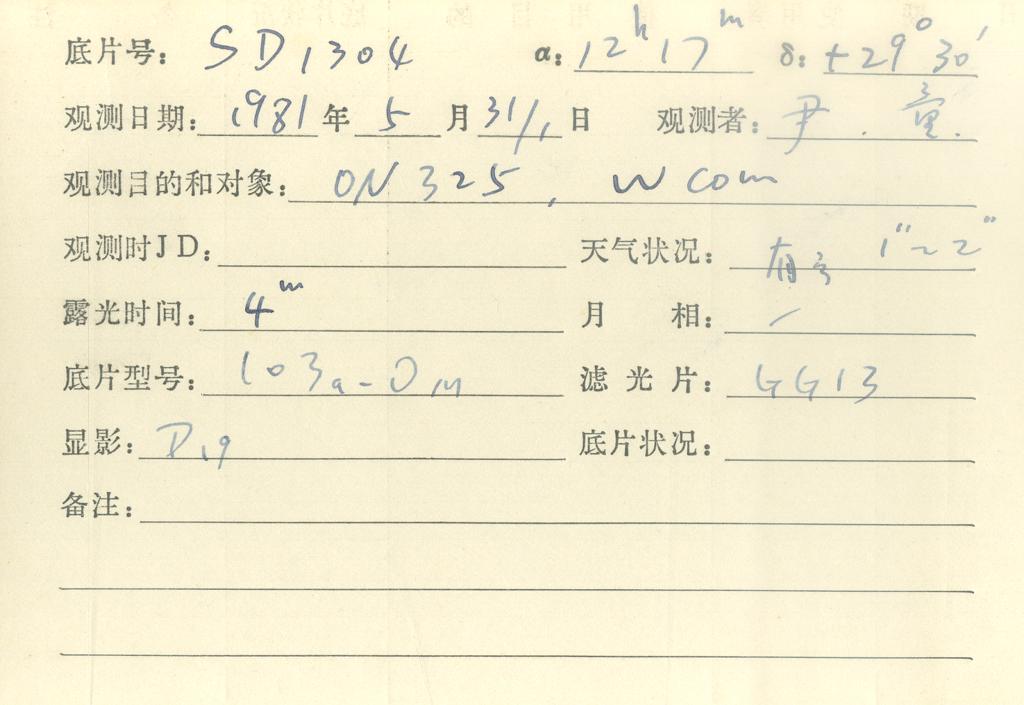 底片号: SD1304 α: 12ʰ17ᵐ δ: +29°30′
观测日期: 1981年5月31/1日 观测者: 尹. 童.
观测目的和对象: ON325, W Com
观测时JD: 天气状况: 有 1″~2″
露光时间: 4ᵐ 月相: /
底片型号: 103a-O 滤光片: GG13
显影: D19 底片状况:
备注: